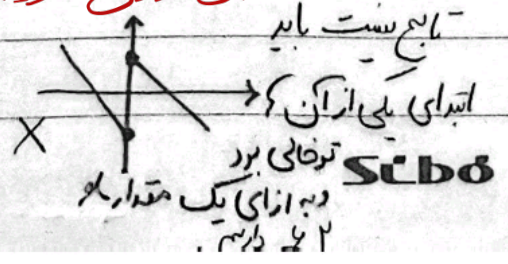 تابع نیست باید
ابتدای یکی از آن ها
توخالی بود
SCbó
و به ازای یک مقدار
۲ تا داریم.